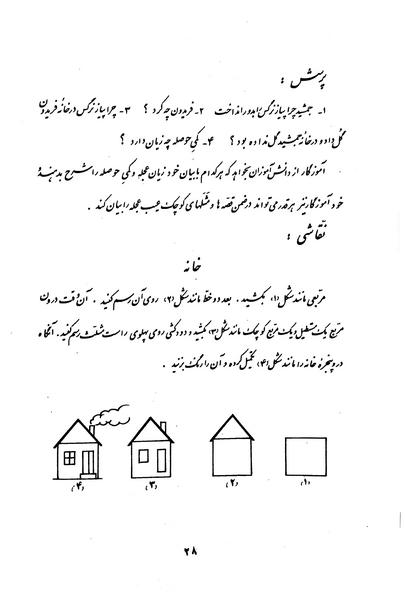 پرسش :
۱- جمشید چرا پیاز نرگس را بدور انداخت ۲- فریدون چه کرد ؟ ۳- چرا پیاز نرگس در خانه فریدون
گل داده و در خانه جمشید گل نداده بود ؟ ۴- کمی حوصله چه زیان دارد ؟
آموزگار از دانش‌آموزان بخواهد که هر کدام با بیان خود زیان عجله و کمی حوصله را شرح بدهند
خود آموزگار نیز هر قدر می تواند در ضمن قصه ها و مثلهای کوچک عیب عجله را بیان کند .
نقاشی :
خانه
مربعی مانند شکل (۱) بکشید . بعد دو خط مانند شکل (۲) روی آن رسم کنید . آن وقت در درون
مربع یک مستطیل و یک مربع کوچک مانند شکل (۳) بکشید و دودکشی روی پهلوی راست مثلث رسم کنید . آنگاه
در و پنجره خانه را مانند شکل (۴) تکمیل کرده و آن را رنگ بزنید .
(۱) (۲) (۳) (۴)
۲۸